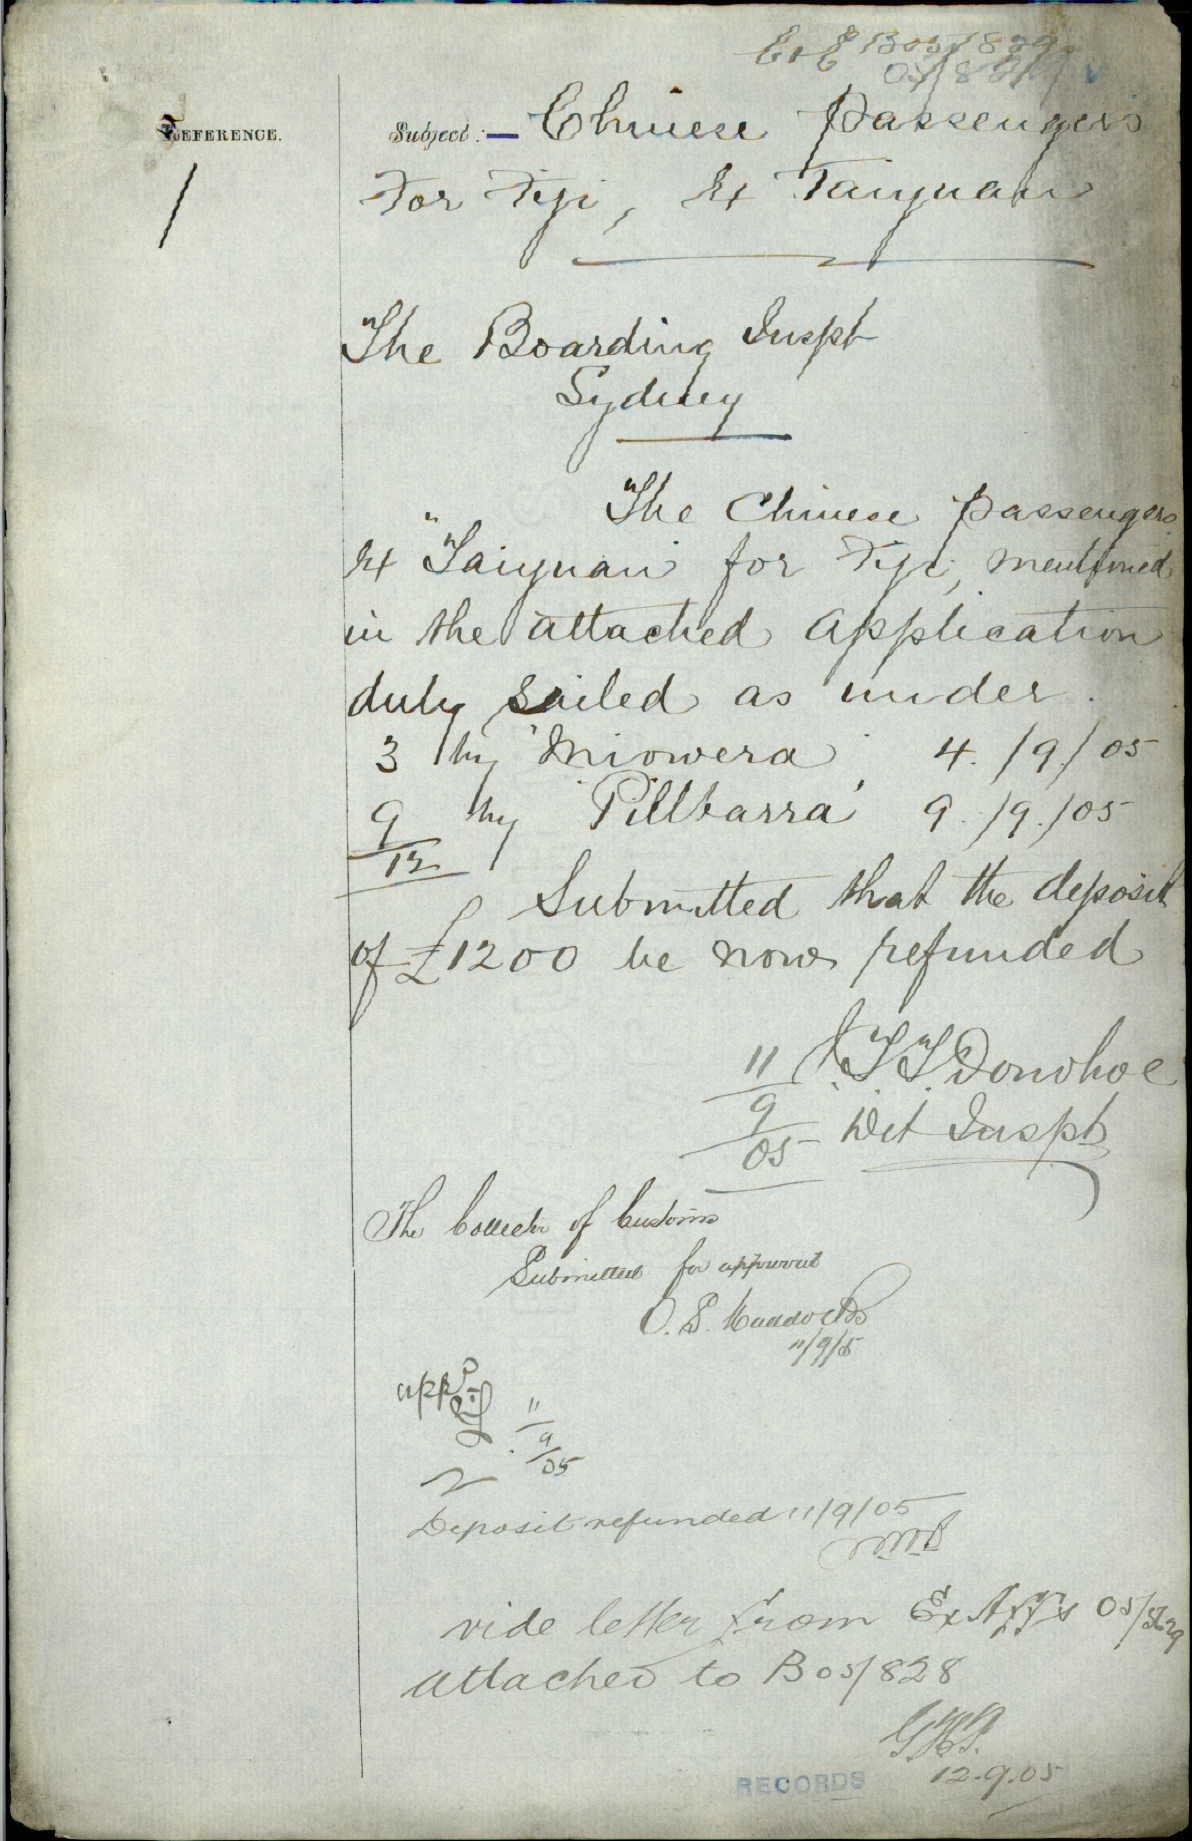 REFERENCE.
Subject:— Chinese Passengers
For Fiji, Ex Taiyuan
The Boarding Inspt
Sydney
The Chinese passengers
Ex "Taiyuan" for Fiji, mentioned
in the attached application
duly sailed as under.
3 by "Miowera" 4./9/05
9 by "Pilbarra" 9./9./05
12
Submitted that the deposit
of £1200 be now refunded
J.T.T. Donohoe
11/9/05 Det Inspt
The Collector of Customs
Submitted for approval
O. S. Maddocks
11/9/5
appd
11/9/05
Deposit refunded 11/9/05
vide letter from Ex Affs 05/
attached to B05/828
12.9.05
RECORDS